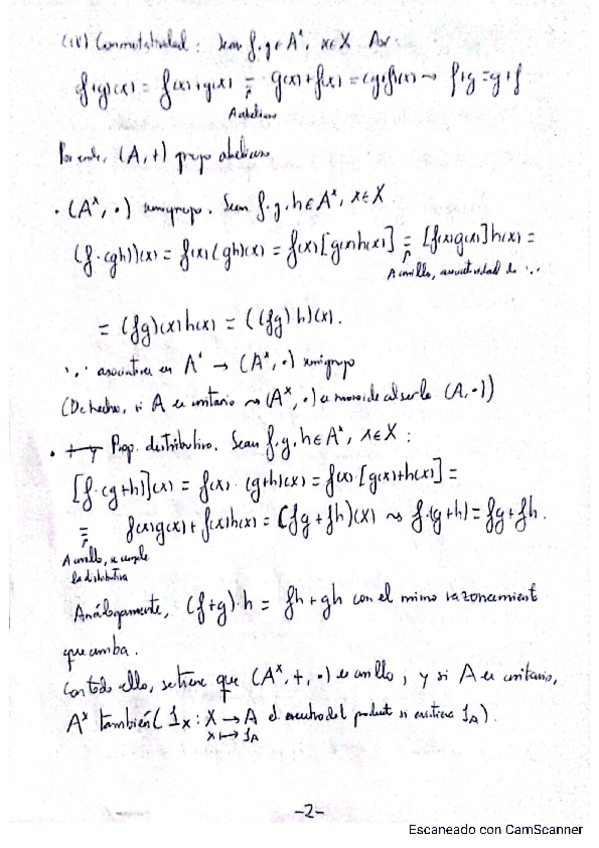 (iv) Conmutatividad: Sean f,g ∈ Aˣ, x∈X. Así
(f+g)(x) = f(x)+g(x) = g(x)+f(x) = (g+f)(x) ⇝ f+g = g+f
A abeliano
Por ende, (A,+) grupo abeliano
· (Aˣ, ·) semigrupo. Sean f,g,h∈Aˣ, x∈X.
(f·(gh))(x) = f(x)(gh)(x) = f(x)[g(x)h(x)] = [f(x)g(x)]h(x) =
A anillo, asociatividad de '·'
= (fg)(x)h(x) = ((fg)h)(x).
'·' asociativa en Aˣ → (Aˣ, ·) semigrupo
(De hecho, si A es unitario ⇝ (Aˣ, ·) es monoide al serlo (A, ·))
· Prop. distributiva. Sean f,g,h∈Aˣ, x∈X:
[f·(g+h)](x) = f(x)·(g+h)(x) = f(x)·[g(x)+h(x)] =
= f(x)g(x) + f(x)h(x) = (fg + fh)(x) ⇝ f·(g+h) = fg+fh.
A anillo, se cumple
la distributiva
Análogamente, (f+g)·h = fh + gh con el mismo razonamiento
que arriba.
Con todo ello, se tiene que (Aˣ, +, ·) es anillo, y si A es unitario,
Aˣ también (1ₓ: X → A el neutro del product si existiera 1_A).
x ↦ 1_A
-2-
Escaneado con CamScanner